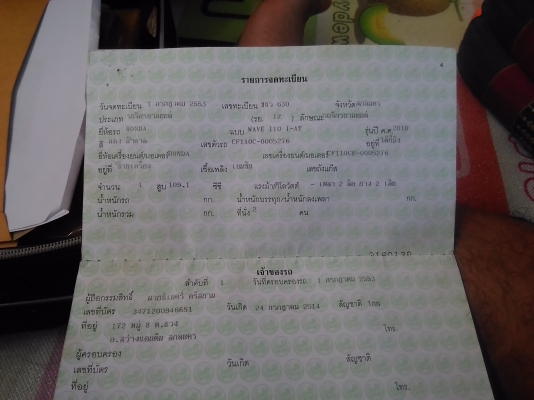 รายการจดทะเบียน
วันจดทะเบียน 1 กรกฎาคม 2553 เลขทะเบียน 630 จังหวัด สกลนคร
ประเภท รถจักรยานยนต์ (รย. 12 ) ลักษณะ รถจักรยานยนต์
ยี่ห้อรถ HONDA แบบ WAVE 110 I-AT รุ่นปี ค.ศ. 2010
สี แดง เลขตัวรถ CF110C-0005276 อยู่ที่
ยี่ห้อเครื่องยนต์/มอเตอร์ HONDA เลขเครื่องยนต์/มอเตอร์ CF110CE-0005276
อยู่ที่ เชื้อเพลิง เบนซิน เลขถังแก๊ส
จำนวน 1 สูบ 109.1 ซีซี แรงม้า/กิโลวัตต์ - เพลา 2 ล้อ ยาง 2 เส้น
น้ำหนักรถ กก. น้ำหนักบรรทุก/น้ำหนักลงเพลา กก.
น้ำหนักรวม กก. ที่นั่ง 2 คน
เจ้าของรถ
ลำดับที่ 1 วันที่ครอบครองรถ 1 กรกฎาคม 2553
ผู้ถือกรรมสิทธิ์
เลขที่บัตร 3471200946651 วันเกิด 24 กรกฎาคม 2514 สัญชาติ ไทย
ที่อยู่ 172 หมู่ 8 ต.แวง โทร.
อ.สว่างแดนดิน สกลนคร
ผู้ครอบครอง
เลขที่บัตร วันเกิด สัญชาติ
ที่อยู่ โทร.